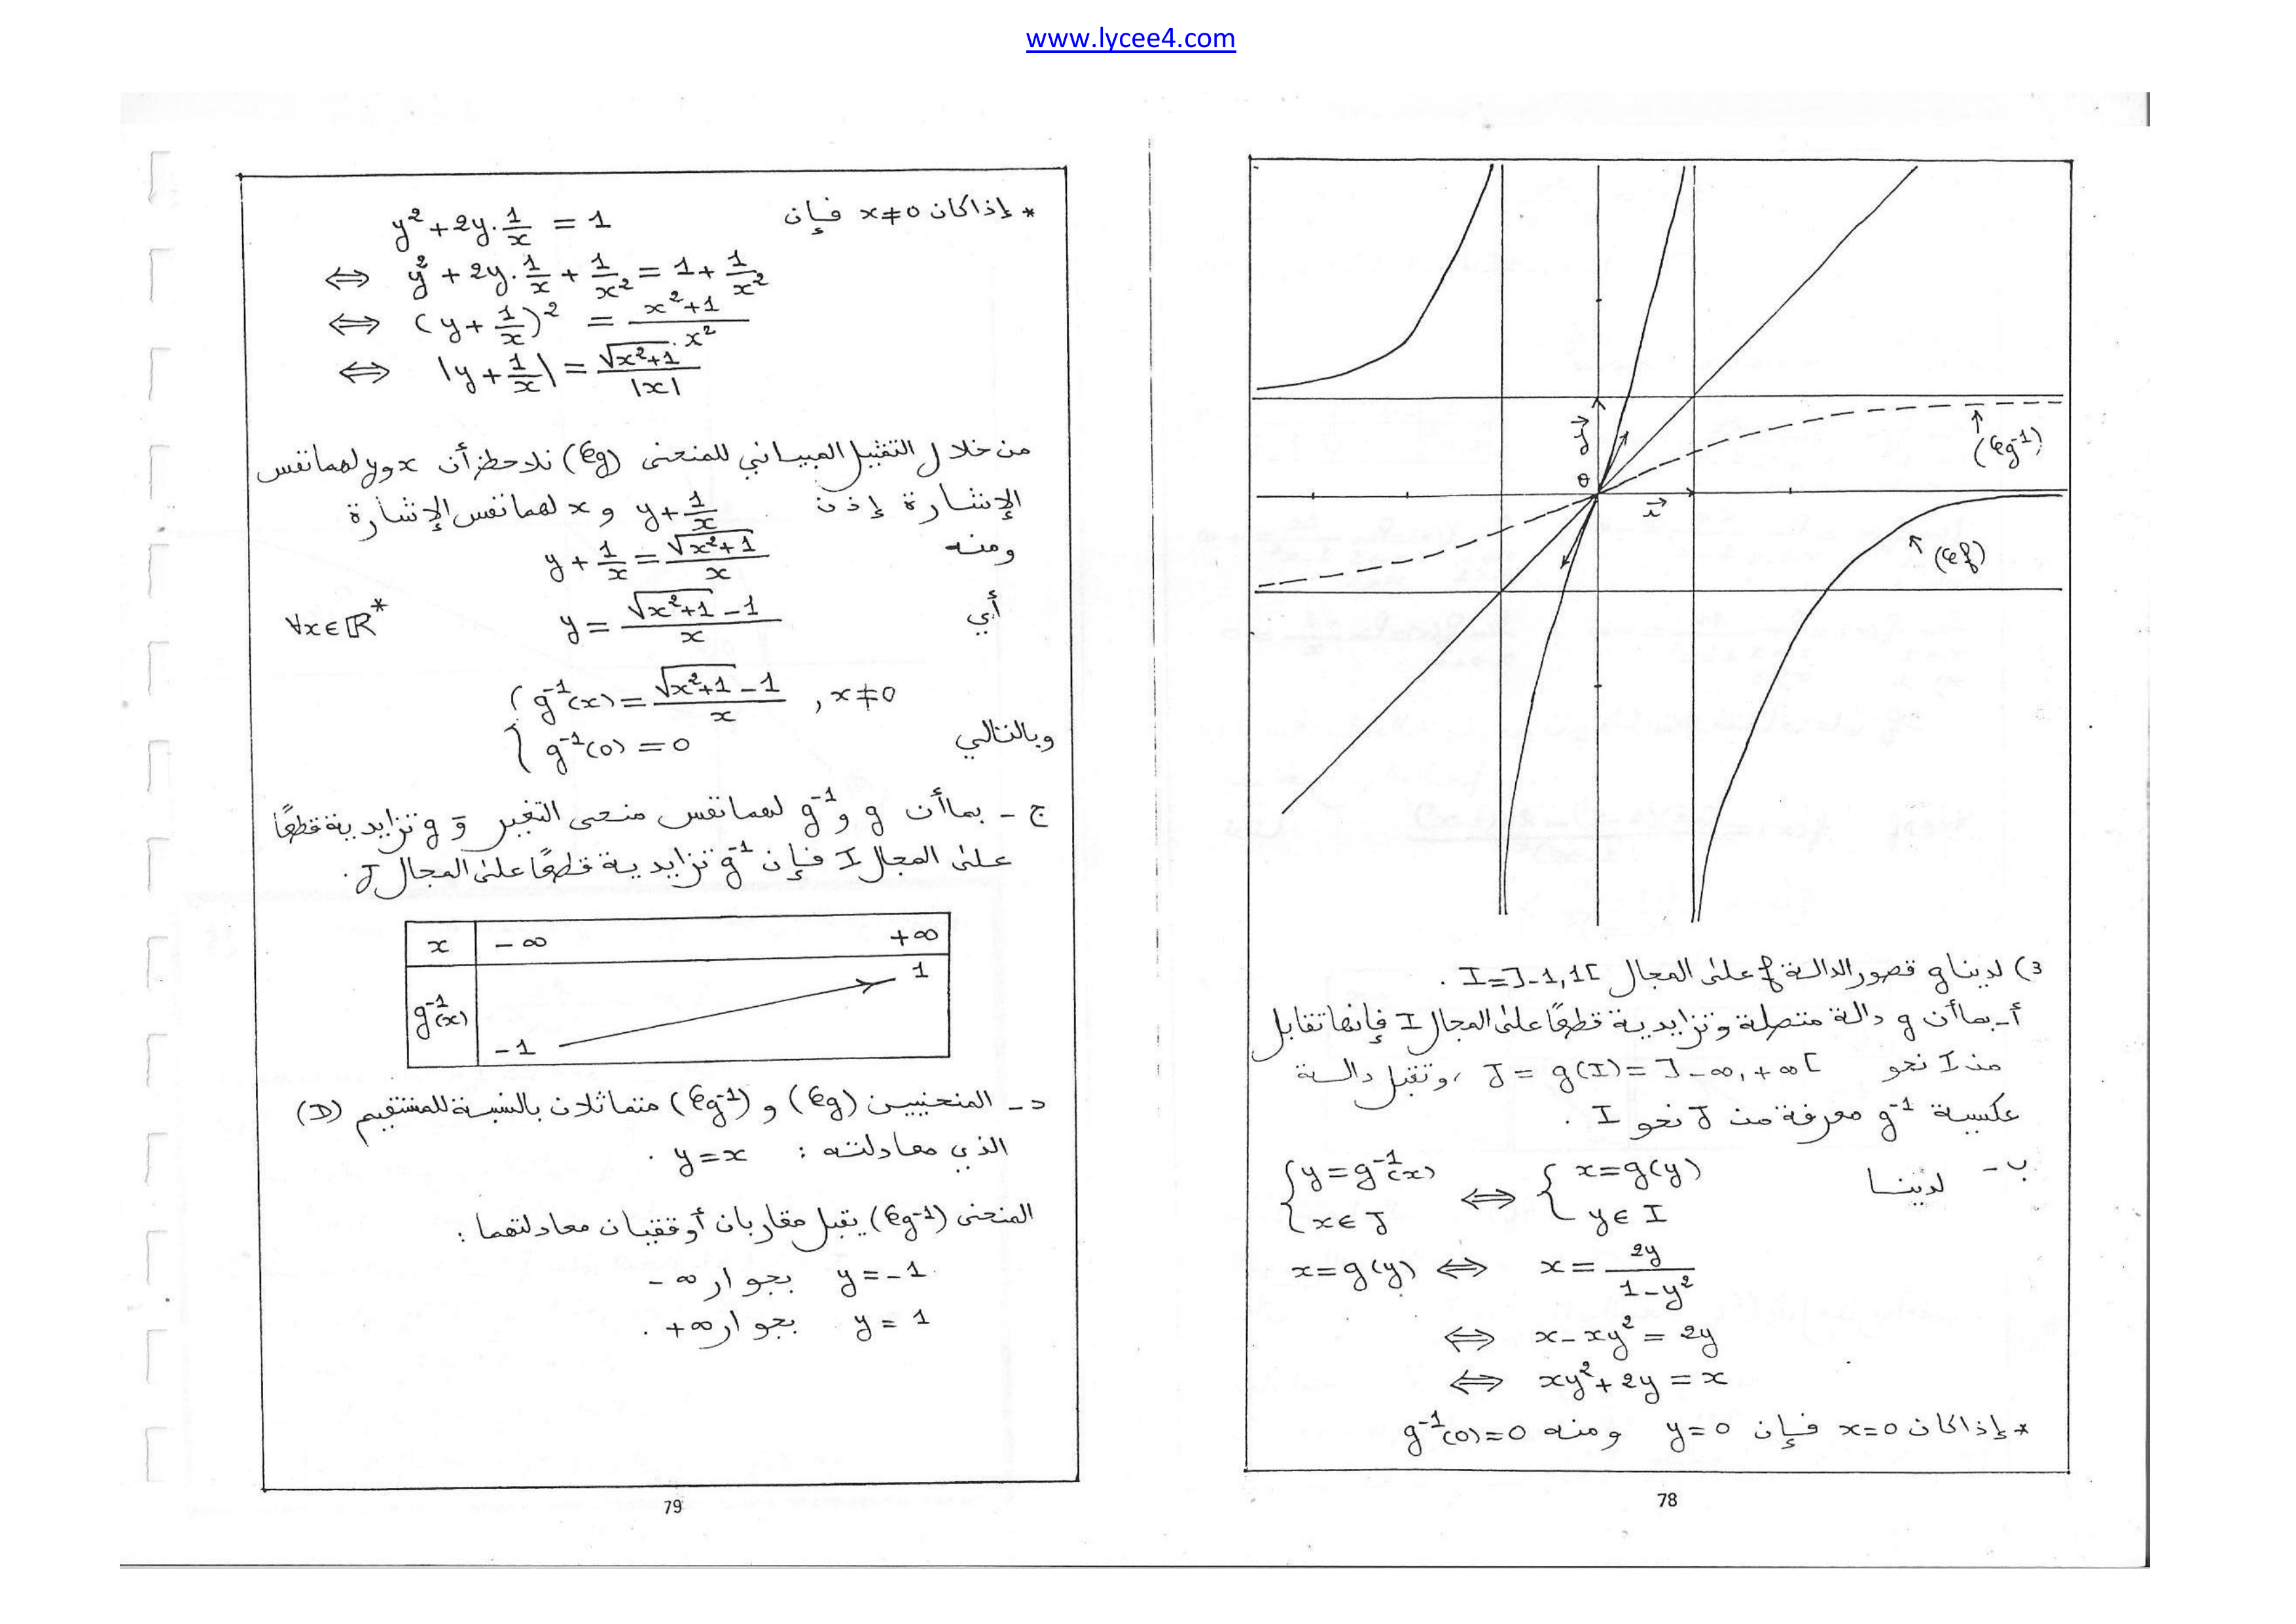 www.lycee4.com
(𝒞g⁻¹)
(𝒞f)
j
o
i
3) لدينا g قصور الدالة f على المجال I=]-1,1[ .
أ- بما أن g دالة متصلة وتزايدية قطعًا على المجال I فإنها تقابل
من I نحو J = g(I) = ]-∞,+∞[ ، وتقبل دالة
عكسية g⁻¹ معرفة من J نحو I .
ب- لدينا {y=g⁻¹(x) ⇔ {x=g(y)
{x∈J {y∈I
x=g(y) ⇔ x = 2y/(1-y²)
⇔ x-xy² = 2y
⇔ xy²+2y = x
* إذا كان x=0 فإن y=0 ومنه g⁻¹(0)=0
78
* إذا كان x≠0 فإن y²+2y.1/x = 1
⇔ y²+2y.1/x+1/x² = 1+1/x²
⇔ (y+1/x)² = (x²+1)/x²
⇔ |y+1/x| = √(x²+1)/|x|
من خلال التمثيل المبياني للمنحنى (𝒞g) نلاحظ أن x و y لهما نفس
الإشارة إذن y+1/x و x لهما نفس الإشارة
ومنه y+1/x = √(x²+1)/x
أي y = (√(x²+1)-1)/x ∀x∈ℝ*
وبالتالي {g⁻¹(x) = (√(x²+1)-1)/x , x≠0
{g⁻¹(0) = 0
ج - بما أن g و g⁻¹ لهما نفس منحى التغير و g تزايدية قطعًا
على المجال I فإن g⁻¹ تزايدية قطعًا على المجال J .
x -∞ +∞
g⁻¹(x) -1 1
د - المنحنيين (𝒞g) و (𝒞g⁻¹) متماثلان بالنسبة للمستقيم (D)
الذي معادلته : y=x .
المنحنى (𝒞g⁻¹) يقبل مقاربان أفقيان معادلتهما :
y=-1 بجوار -∞
y = 1 بجوار +∞ .
79